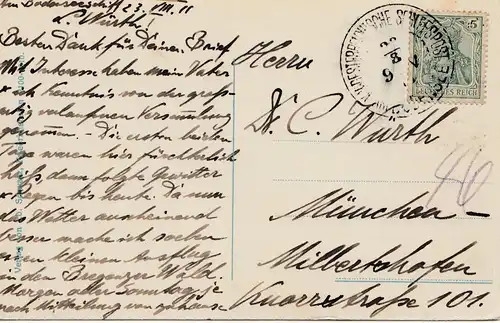 Am Bodenseeschiff, 23. VII. 11
L. Wurth!
Besten Dank für Deinen Brief.
Mit Interesse haben mein Vater
u. ich Kenntnis von der groß-
artig verlaufenen Versammlung
genommen. Die ersten beiden
Tage waren hier fürchterlich
heiß, dann folgte Gewitter
u. Regen bis heute. Da nun
das Wetter anscheinend
besser mache ich soeben
einen kleinen Ausflug
in den Bregenzer Wald.
Morgen oder Sonntag je
nach Mitteilung von zuhause
Herrn
Dr. C. Wurth
München-
Milbertshofen
Knorrstraße 101.
46
5
DEUTSCHES REICH